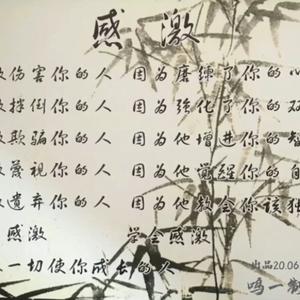 感 激
伤害你的人 因为磨练了你的心
绊倒你的人 因为强化了你的双
欺骗你的人 因为他增进你的智
蔑视你的人 因为他觉醒你的自
遗弃你的人 因为他教会你该独
感激 学会感激
一切使你成长的人
出品20.06
鸣一